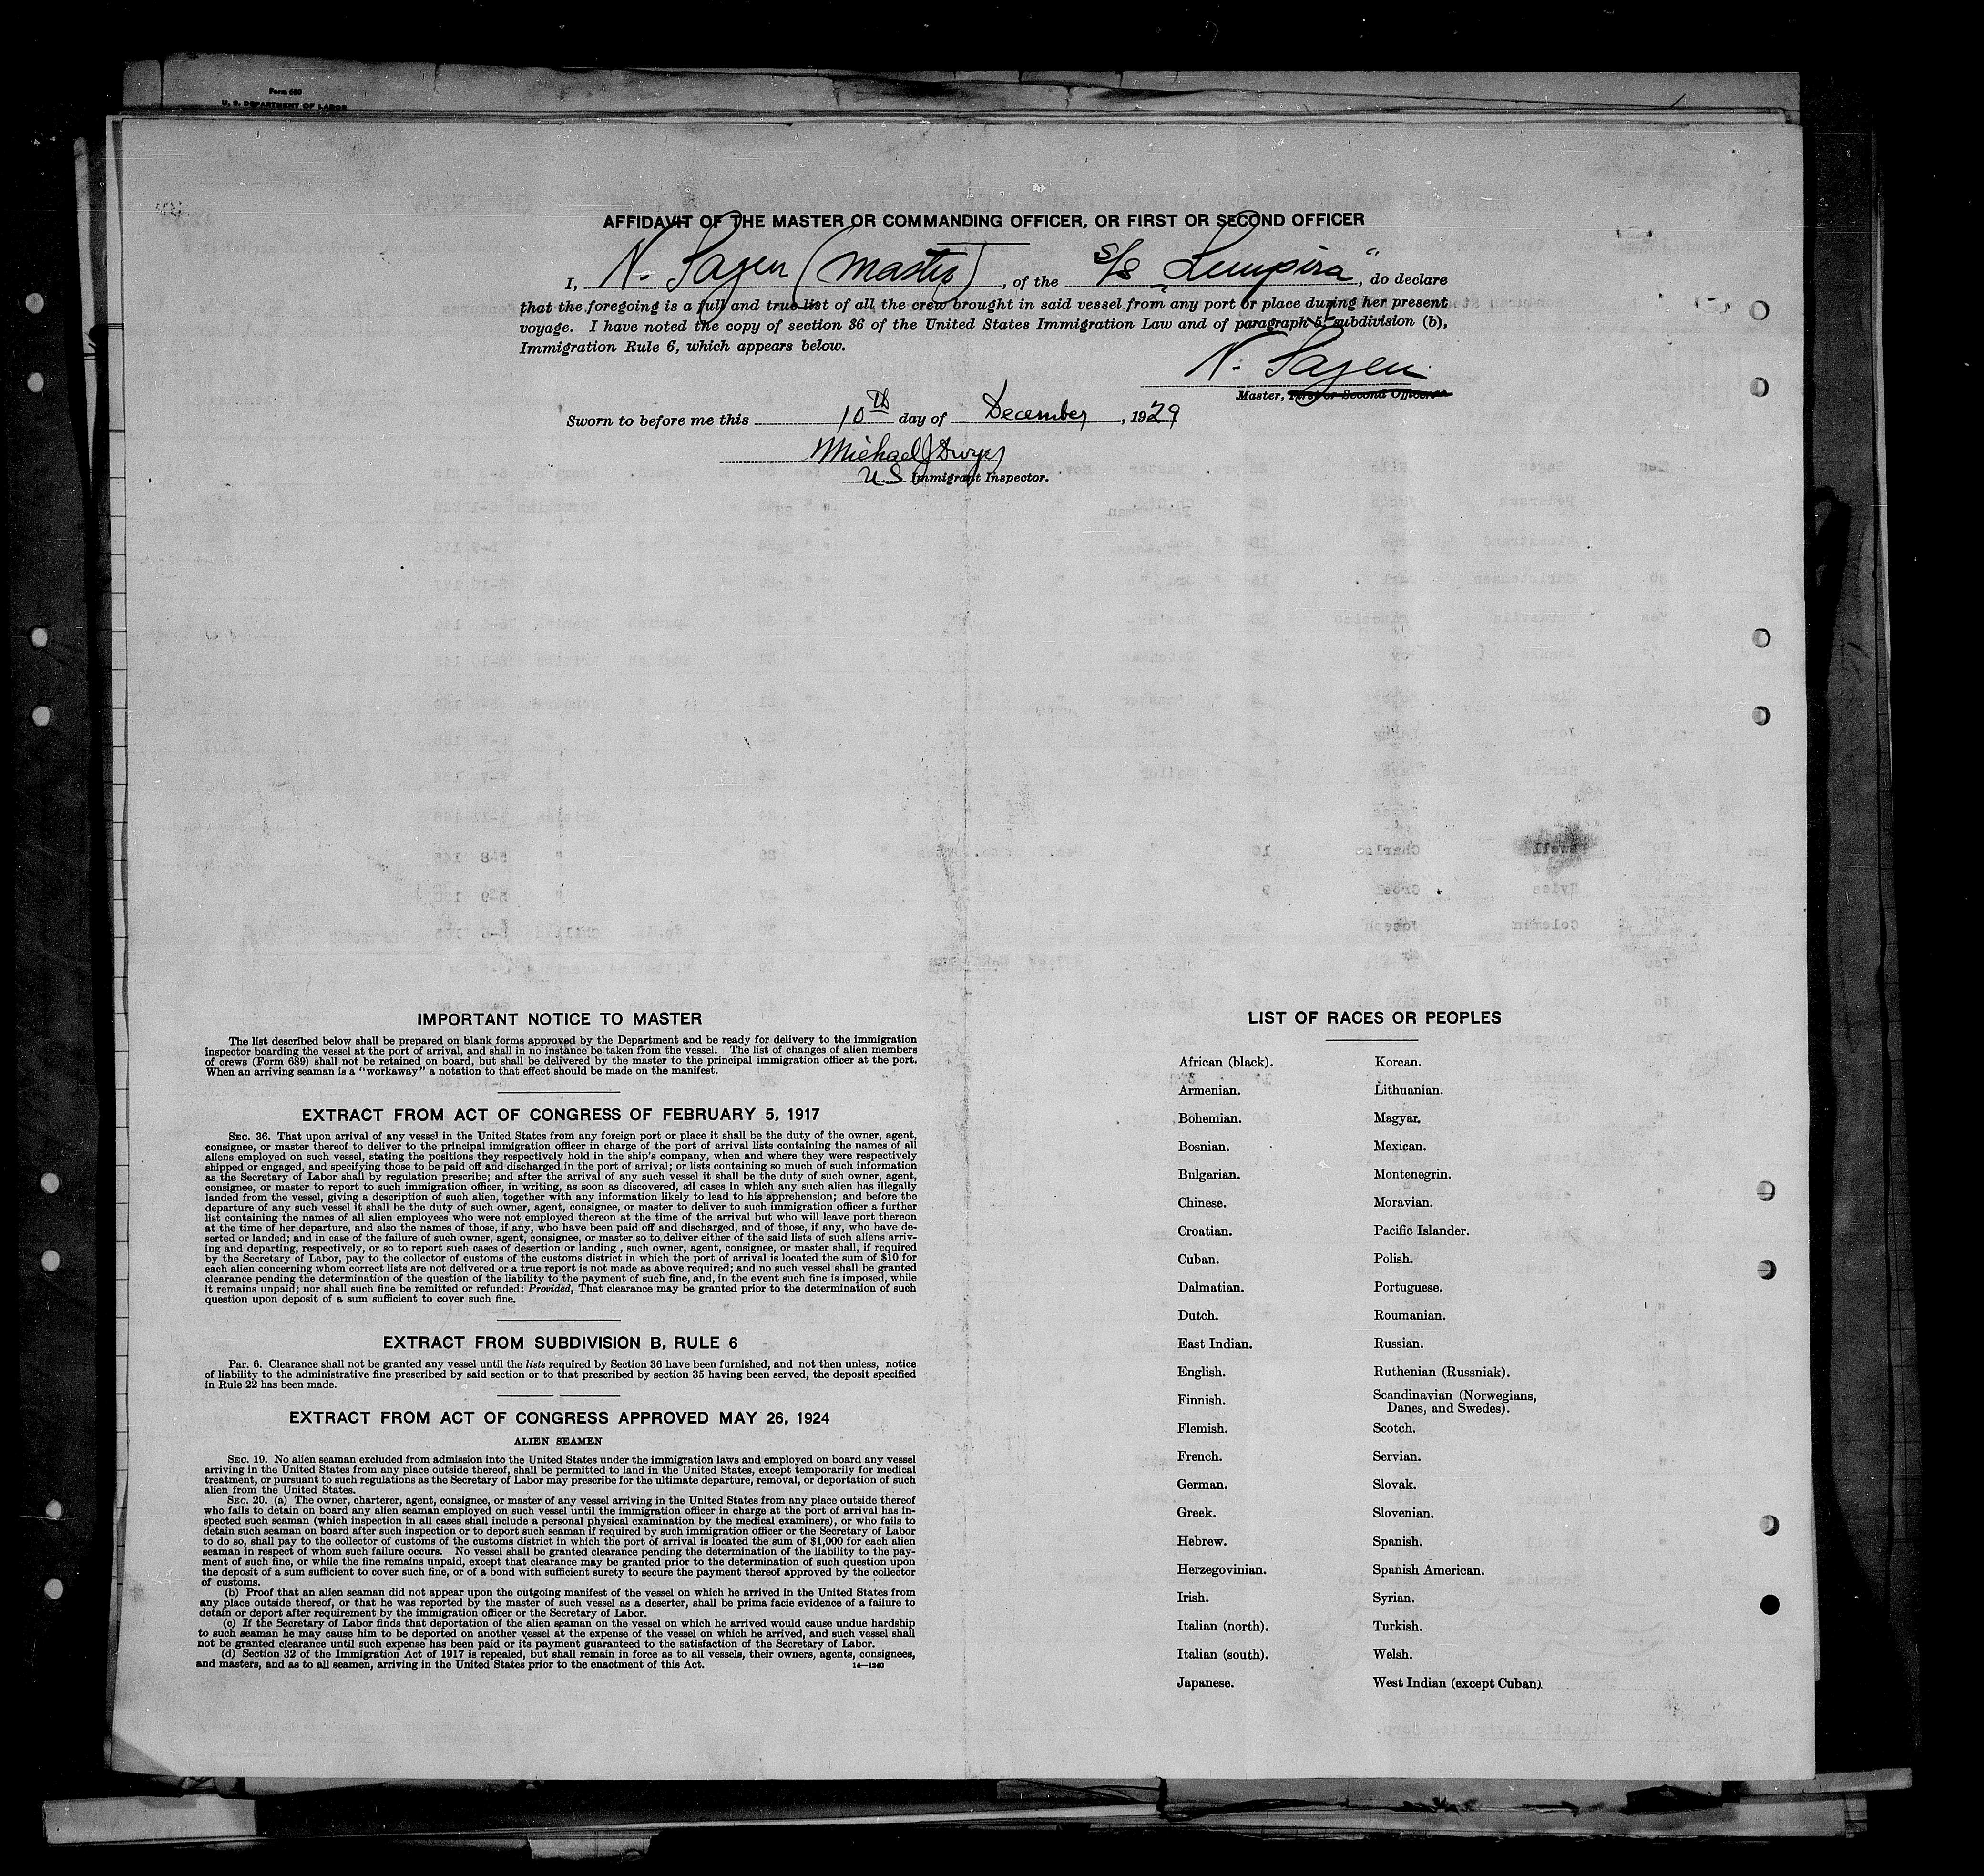 Form 680
U. S. DEPARTMENT OF LABOR
AFFIDAVIT OF THE MASTER OR COMMANDING OFFICER, OR FIRST OR SECOND OFFICER
I, N. Sagen (Master), of the S/S "Lempira", do declare
that the foregoing is a full and true list of all the crew brought in said vessel from any port or place during her present
voyage. I have noted the copy of section 36 of the United States Immigration Law and of paragraph 5, subdivision (b),
Immigration Rule 6, which appears below.
N. Sagen
Master, First or Second Officer.
Sworn to before me this 10th day of December, 1929
Michael J Dwyer
U S Immigrant Inspector.
IMPORTANT NOTICE TO MASTER
The list described below shall be prepared on blank forms approved by the Department and be ready for delivery to the immigration
inspector boarding the vessel at the port of arrival, and shall in no instance be taken from the vessel. The list of changes of alien members
of crews (Form 689) shall not be retained on board, but shall be delivered by the master to the principal immigration officer at the port.
When an arriving seaman is a "workaway" a notation to that effect should be made on the manifest.
EXTRACT FROM ACT OF CONGRESS OF FEBRUARY 5, 1917
SEC. 36. That upon arrival of any vessel in the United States from any foreign port or place it shall be the duty of the owner, agent,
consignee, or master thereof to deliver to the principal immigration officer in charge of the port of arrival lists containing the names of all
aliens employed on such vessel, stating the positions they respectively hold in the ship's company, when and where they were respectively
shipped or engaged, and specifying those to be paid off and discharged in the port of arrival; or lists containing so much of such information
as the Secretary of Labor shall by regulation prescribe; and after the arrival of any such vessel it shall be the duty of such owner, agent,
consignee, or master to report to such immigration officer, in writing, as soon as discovered, all cases in which any such alien has illegally
landed from the vessel, giving a description of such alien, together with any information likely to lead to his apprehension; and before the
departure of any such vessel it shall be the duty of such owner, agent, consignee, or master to deliver to such immigration officer a further
list containing the names of all alien employees who were not employed thereon at the time of the arrival but who will leave port thereon
at the time of her departure, and also the names of those, if any, who have been paid off and discharged, and of those, if any, who have de-
serted or landed; and in case of the failure of such owner, agent, consignee, or master so to deliver either of the said lists of such aliens arriv-
ing and departing, respectively, or so to report such cases of desertion or landing , such owner, agent, consignee, or master shall, if required
by the Secretary of Labor, pay to the collector of customs of the customs district in which the port of arrival is located the sum of $10 for
each alien concerning whom correct lists are not delivered or a true report is not made as above required; and no such vessel shall be granted
clearance pending the determination of the question of the liability to the payment of such fine, and, in the event such fine is imposed, while
it remains unpaid; nor shall such fine be remitted or refunded: Provided, That clearance may be granted prior to the determination of such
question upon deposit of a sum sufficient to cover such fine.
EXTRACT FROM SUBDIVISION B, RULE 6
Par. 6. Clearance shall not be granted any vessel until the lists required by Section 36 have been furnished, and not then unless, notice
of liability to the administrative fine prescribed by said section or to that prescribed by section 35 having been served, the deposit specified
in Rule 22 has been made.
EXTRACT FROM ACT OF CONGRESS APPROVED MAY 26, 1924
ALIEN SEAMEN
SEC. 19. No alien seaman excluded from admission into the United States under the immigration laws and employed on board any vessel
arriving in the United States from any place outside thereof, shall be permitted to land in the United States, except temporarily for medical
treatment, or pursuant to such regulations as the Secretary of Labor may prescribe for the ultimate departure, removal, or deportation of such
alien from the United States.
SEC. 20. (a) The owner, charterer, agent, consignee, or master of any vessel arriving in the United States from any place outside thereof
who fails to detain on board any alien seaman employed on such vessel until the immigration officer in charge at the port of arrival has in-
spected such seaman (which inspection in all cases shall include a personal physical examination by the medical examiners), or who fails to
detain such seaman on board after such inspection or to deport such seaman if required by such immigration officer or the Secretary of Labor
to do so, shall pay to the collector of customs of the customs district in which the port of arrival is located the sum of $1,000 for each alien
seaman in respect of whom such failure occurs. No vessel shall be granted clearance pending the determination of the liability to the pay-
ment of such fine, or while the fine remains unpaid, except that clearance may be granted prior to the determination of such question upon
the deposit of a sum sufficient to cover such fine, or of a bond with sufficient surety to secure the payment thereof approved by the collector
of customs.
(b) Proof that an alien seaman did not appear upon the outgoing manifest of the vessel on which he arrived in the United States from
any place outside thereof, or that he was reported by the master of such vessel as a deserter, shall be prima facie evidence of a failure to
detain or deport after requirement by the immigration officer or the Secretary of Labor.
(c) If the Secretary of Labor finds that deportation of the alien seaman on the vessel on which he arrived would cause undue hardship
to such seaman he may cause him to be deported on another vessel at the expense of the vessel on which he arrived, and such vessel shall
not be granted clearance until such expense has been paid or its payment guaranteed to the satisfaction of the Secretary of Labor.
(d) Section 32 of the Immigration Act of 1917 is repealed, but shall remain in force as to all vessels, their owners, agents, consignees,
and masters, and as to all seamen, arriving in the United States prior to the enactment of this Act. 14—1240
LIST OF RACES OR PEOPLES
African (black). Korean.
Armenian. Lithuanian.
Bohemian. Magyar.
Bosnian. Mexican.
Bulgarian. Montenegrin.
Chinese. Moravian.
Croatian. Pacific Islander.
Cuban. Polish.
Dalmatian. Portuguese.
Dutch. Roumanian.
East Indian. Russian.
English. Ruthenian (Russniak).
Finnish. Scandinavian (Norwegians,
Danes, and Swedes).
Flemish. Scotch.
French. Servian.
German. Slovak.
Greek. Slovenian.
Hebrew. Spanish.
Herzegovinian. Spanish American.
Irish. Syrian.
Italian (north). Turkish.
Italian (south). Welsh.
Japanese. West Indian (except Cuban).